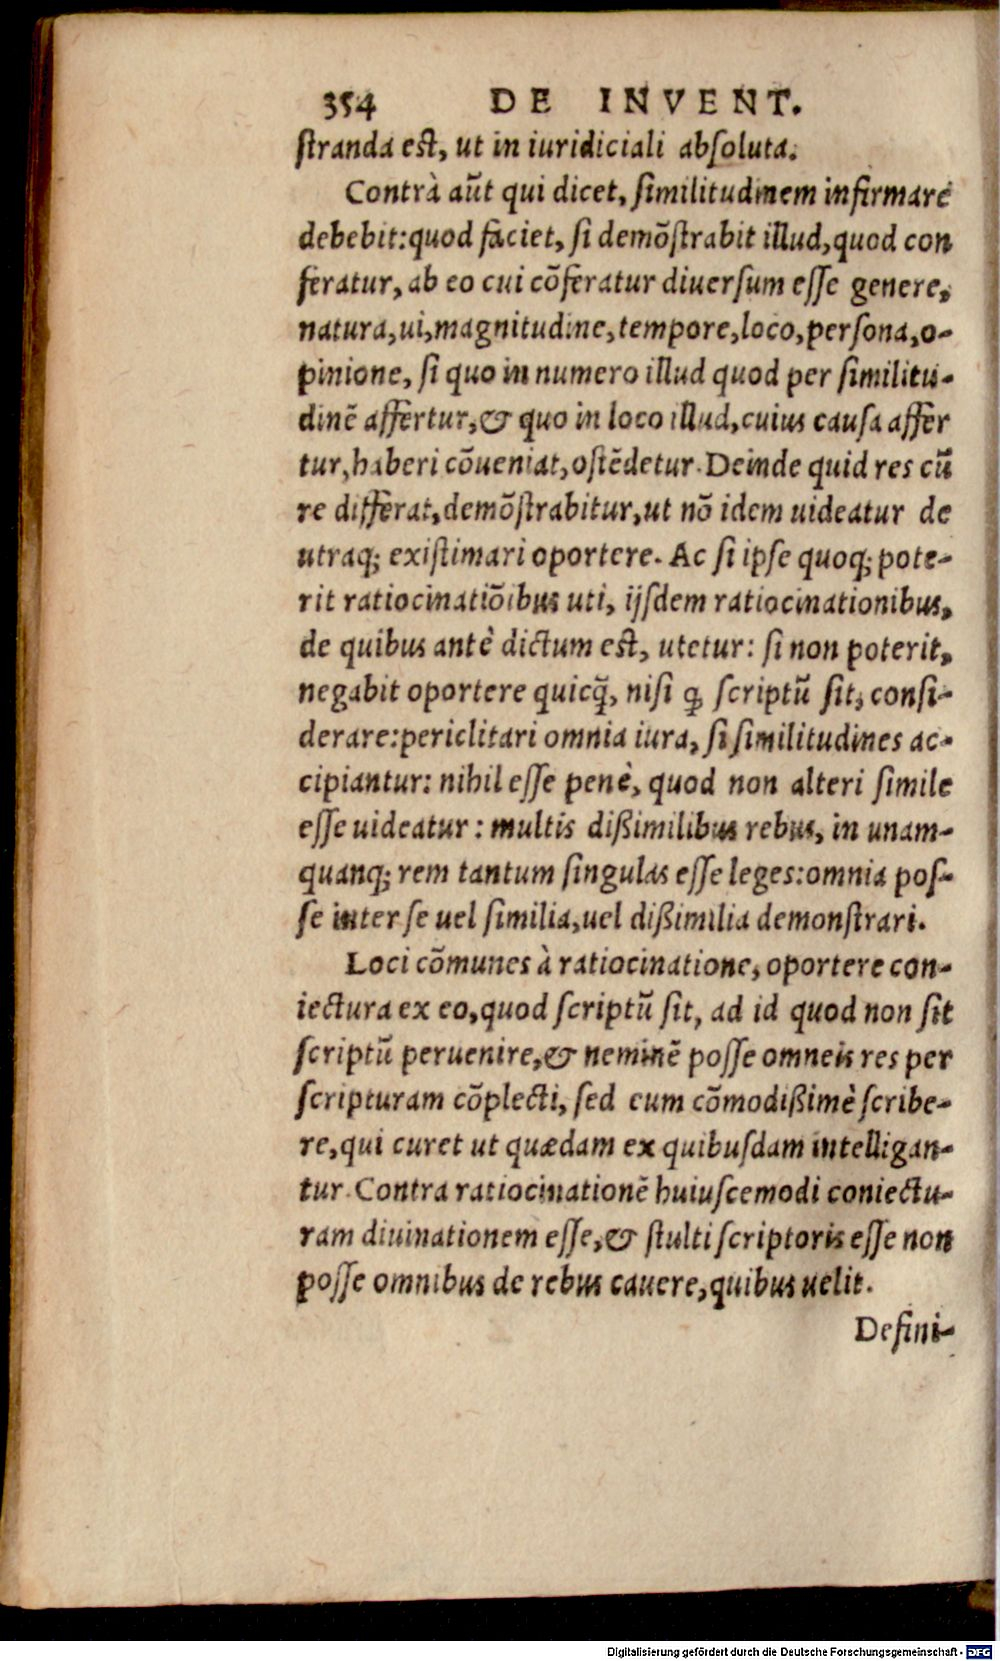 354 DE INVENT.
stranda est, ut in iuridiciali absoluta.
Contrà aūt qui dicet, similitudinem infirmare
debebit: quod faciet, si demōstrabit illud, quod con
feratur, ab eo cui cōferatur diuersum esse genere,
natura, ui, magnitudine, tempore, loco, persona, o-
pinione, si quo in numero illud quod per similitu-
dinē affertur, & quo in loco illud, cuius causa affer
tur, haberi cōueniat, ostēdetur. Deinde quid res cū
re differat, demōstrabitur, ut nō idem uideatur de
utraq; existimari oportere. Ac si ipse quoq; pote-
rit ratiocinatiōibus uti, ijsdem ratiocinationibus,
de quibus antè dictum est, utetur: si non poterit,
negabit oportere quicq̃, nisi ꝙ scriptū sit, consi-
derare: periclitari omnia iura, si similitudines ac-
cipiantur: nihil esse penè, quod non alteri simile
esse uideatur: multis dißimilibus rebus, in unam-
quanq; rem tantum singulas esse leges: omnia pos-
se inter se uel similia, uel dißimilia demonstrari.
Loci cōmunes à ratiocinatione, oportere con-
iectura ex eo, quod scriptū sit, ad id quod non sit
scriptū peruenire, & neminē posse omneis res per
scripturam cōplecti, sed eum cōmodißimè scribe-
re, qui curet ut quædam ex quibusdam intelligan-
tur. Contra ratiocinationē huiuscemodi coniectu-
ram diuinationem esse, & stulti scriptoris esse non
posse omnibus de rebus cauere, quibus uelit.
Defini-
Digitalisierung gefördert durch die Deutsche Forschungsgemeinschaft - DFG